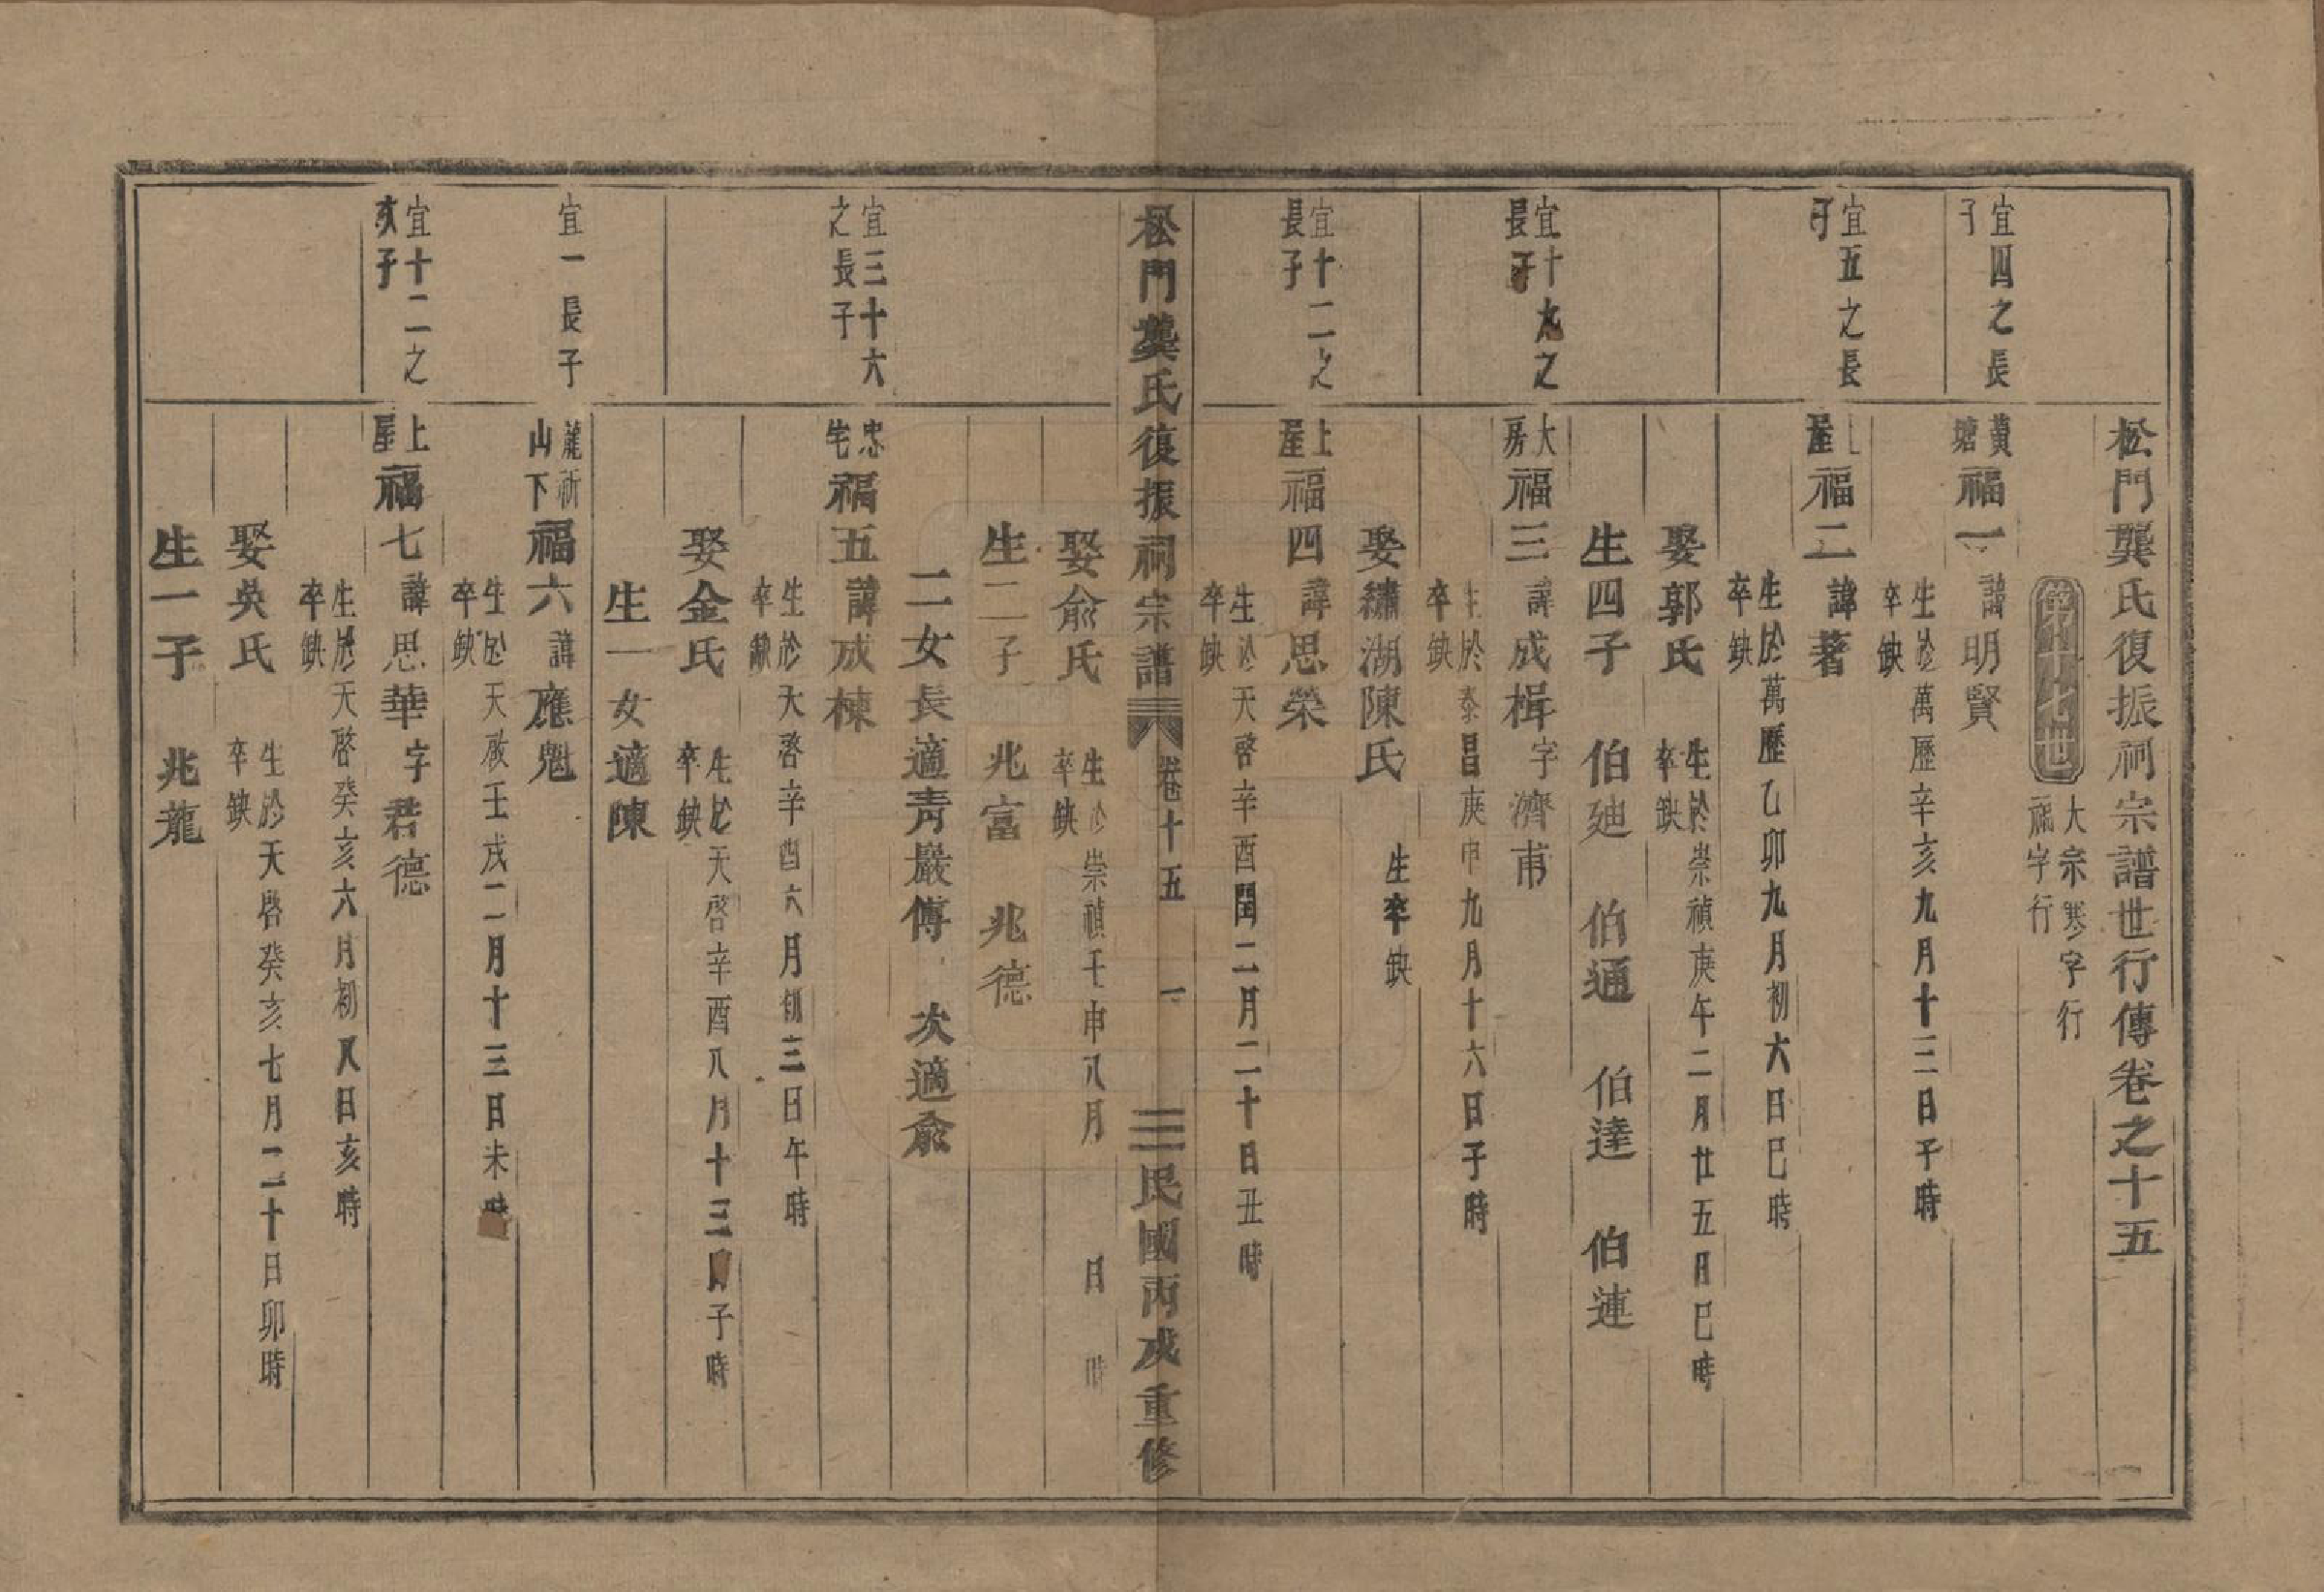 松門龔氏復振祠宗譜世行傳卷之十五
第廿七世
大宗寒字行
福字行
宜四之長子
黃塘福一諱明賢
生於萬歷辛亥九月十三日子時
卒缺
宜五之長子
上屋福二諱著
生於萬歷乙卯九月初六日巳時
卒缺
娶郭氏
生於崇禎庚午二月廿五日巳時
卒缺
生四子 伯廸 伯通 伯達 伯連
宜十九之長子
大房福三諱成楫字濟甫
生於泰昌庚申九月十六日子時
卒缺
娶繡湖陳氏 生卒缺
宜十二之長子
上屋福四諱思榮
生於天啓辛酉閏二月二十日丑時
卒缺
松門龔氏復振祠宗譜 卷十五 一 民國丙戌重修
娶俞氏
生於崇禎壬申八月 日 時
卒缺
生二子 兆富 兆德
二女長適青巖傅 次適俞
宜三十六之長子
忠宅福五諱成棟
生於天啓辛酉六月初三日午時
卒缺
娶金氏
生於天啓辛酉八月十三日子時
卒缺
生一女適陳
宜一長子
龍祈山下福六諱應魁
生於天啟壬戌二月十三日未時
卒缺
宜十二之次子
上屋福七諱思華字君德
生於天啓癸亥六月初八日亥時
卒缺
娶吳氏
生於天啓癸亥七月二十日卯時
卒缺
生一子 兆龍